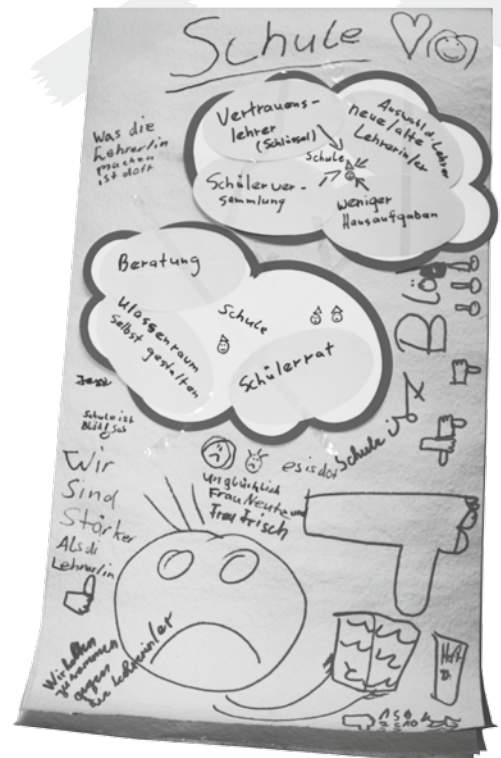 Schule
Was die
Lehrer/in
machen
ist doff
Vertrauens-
lehrer
(Schlüssel)
Auswahl d. Lehrer
neue/alte
Lehrerin/er
Schule
Schülerver-
sammlung
weniger
Hausaufgaben
Beratung
Klassenraum
Selbst gestalten
Schule
Schülerrat
Schule ist
Wir
Sind
Stärker
Als di
Lehrer/in
Unglücklich
Frau Neute
Frau Frisch
es is dof
Schule is
Blöd
Wir halten
zusammen
gegen
die Lehrerin/er
Heft